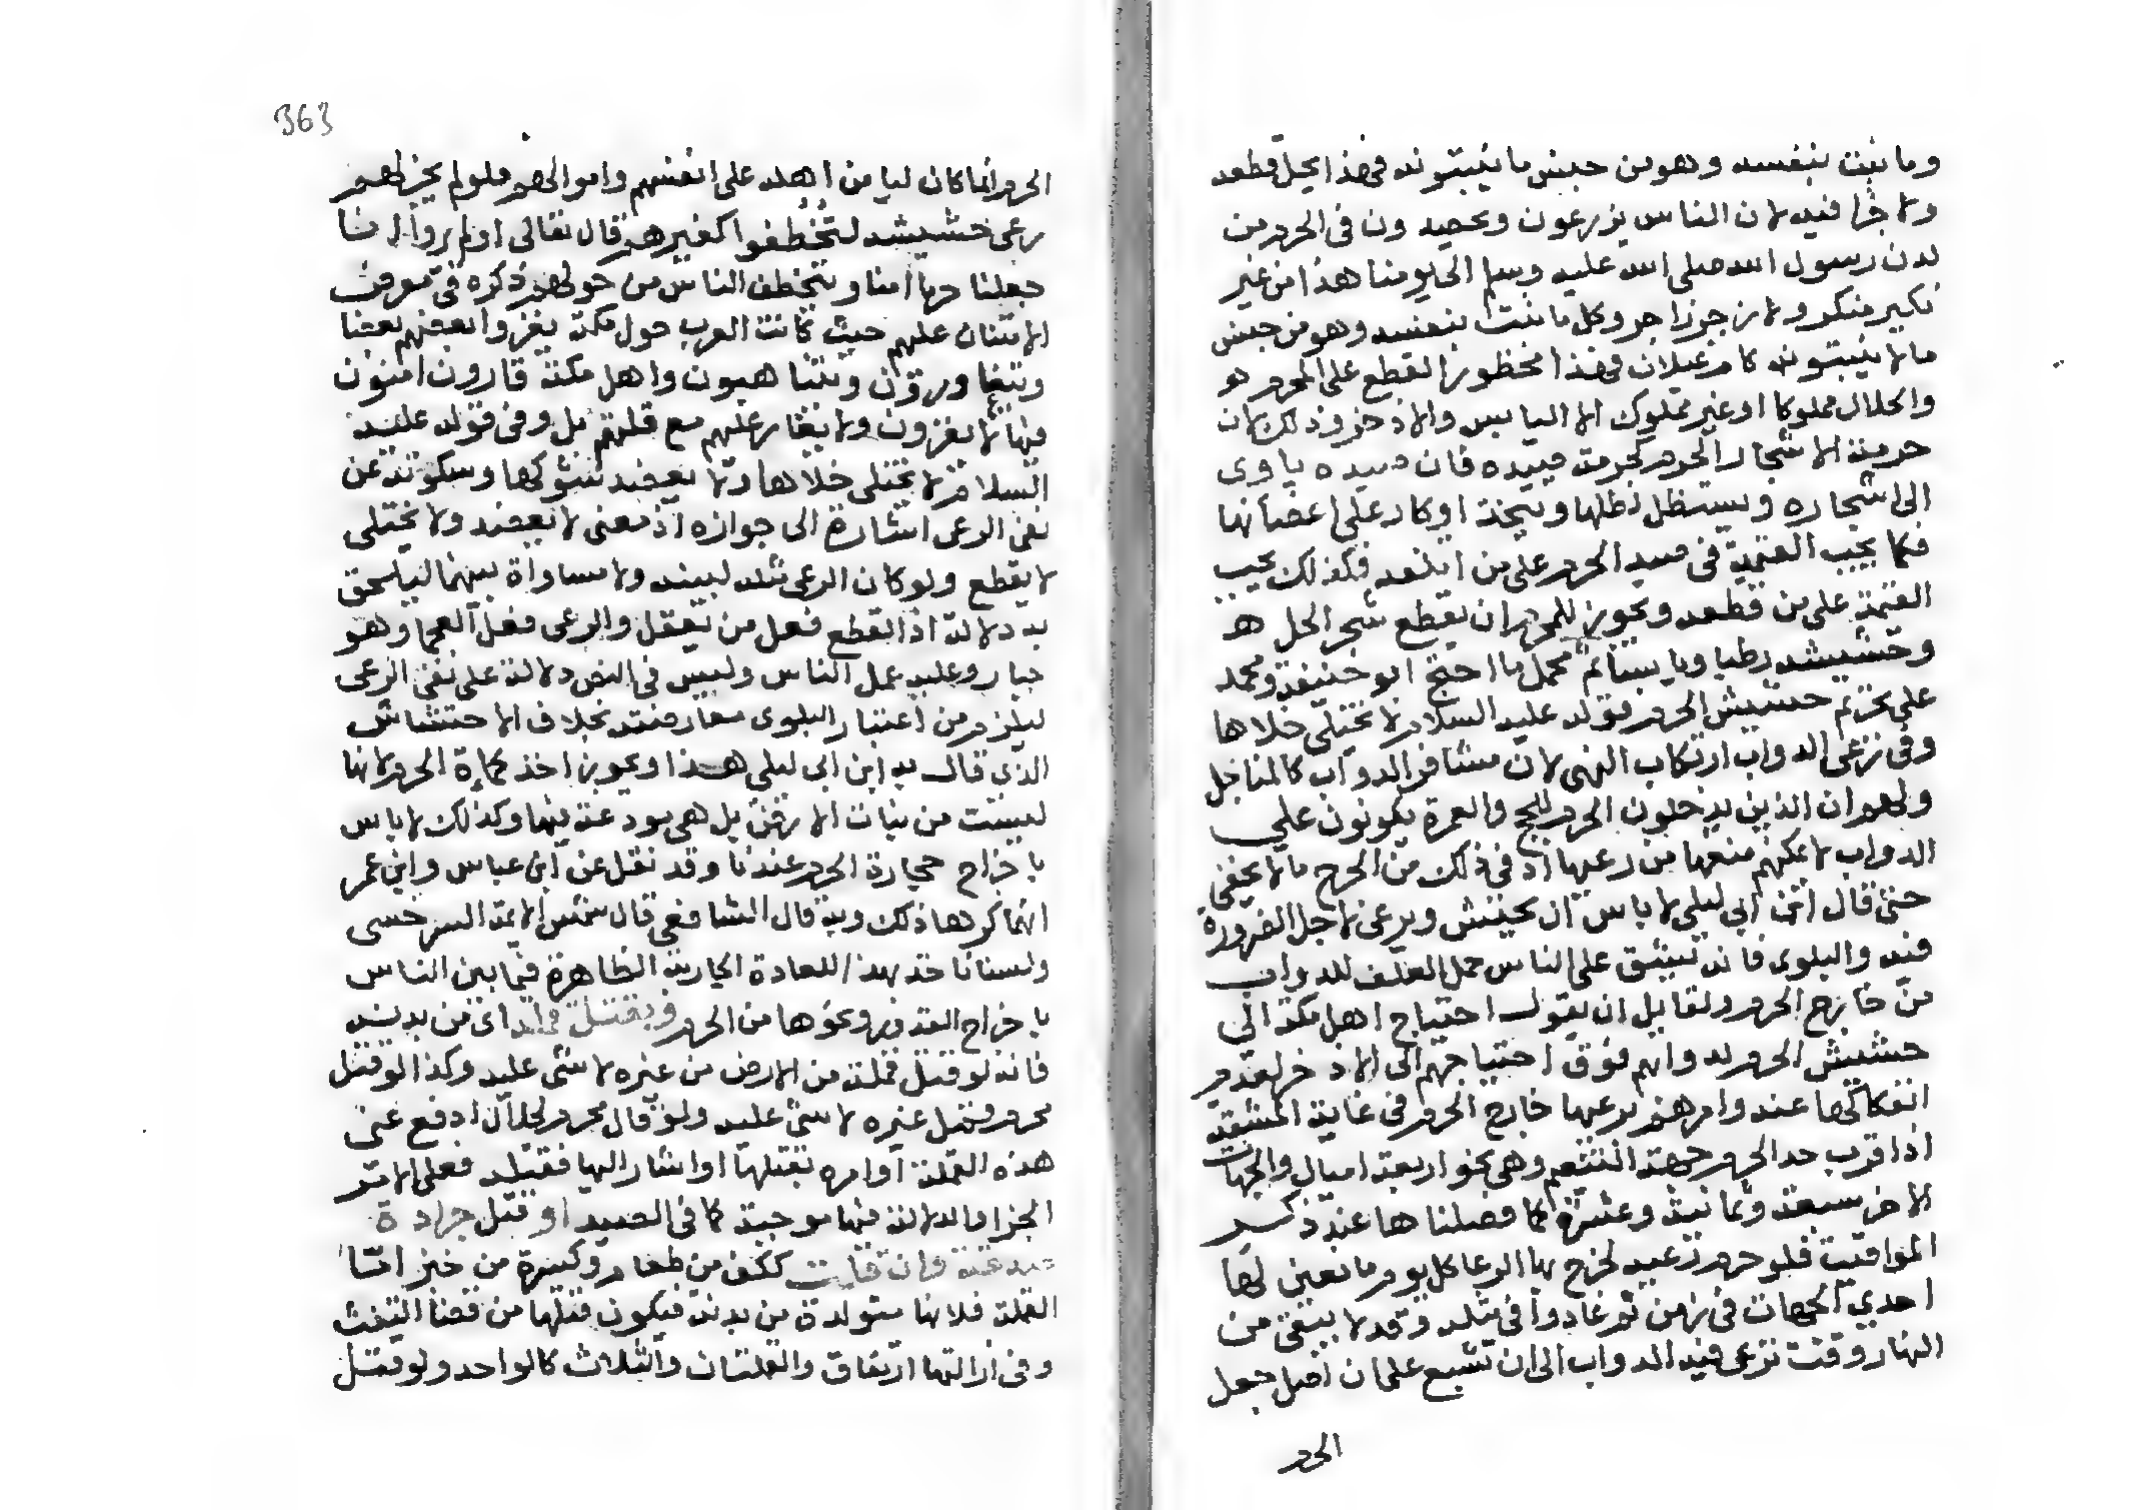 وما نبت بنفسه وهو من جنس ما ينبتونه فهذا يحل قطعه
ولا جزا فيه لان الناس يزرعون ويحصدون في الحرم من
لدن رسول الله صلى الله عليه وسلم الى يومنا هذا من غير
نكير منكر ولا زجر زاجر وكل ما نبت بنفسه وهو من جنس
ما لا ينبتونه كام غيلان فهذا محظور القطع على المحرم هو
والحلال مملوكا او غير مملوك الا اليابس والاذخر وذلك لان
حرمة الاشجار الحرم كحرمة صيده فان صيده ياوى
الى اشجاره ويستظل بظلها ويتخذ اوكاره على اغصانها
فكما يجب القيمة في صيد الحرم على من اتلفه فكذلك يجب
القيمة على من قطعه ويجوز للمحرم ان يقطع شجر الحل هـ
وحشيشه رطبا ويابسا ثم محمل ما احتج ابو حنيفة ومحمد
على تحريم حشيش الحرم قوله عليه السلام لا يختلى خلاها
وفى رعى الدواب ارتكاب النهى لان مشافر الدواب كالمناجل
ولهم ان الذين يدخلون الحرم للحج والعمرة يكونون على
الدواب لا يمكنهم منعها من رعيها اذ في ذلك من الحرج ما لا يخفى
حتى قال ابن ابي ليلى لا باس ان يحتش ويرعى لاجل الضرورة
فيه والبلوى فانه يشق على الناس حمل العلف للدواب
من خارج الحرم ولقايل ان يقول احتياج اهل مكة الى
حشيش الحرم له وابهم فوق احتياجهم الى الاذخر لعدم
انفكاكها عنه وامرهم برعيها خارج الحرم في غاية المشقة
اذا قرب حد الحرم جهة التنعيم وهي نحو اربعة اميال والجهات
الاخر سبعة وثمانية وعشرة كما فصلناها عند ذكر
المواقيت فلو حرم رعيه لخرج بها الرعا كل يوم ما تعين لها
احدى الجهات في زمن ثم عادوا في مثله وقد لا يبقى من
النهار وقت ترعى فيه الدواب الى ان تشبع على ان اصل جعل
الحرم
363
الحرم انما كان ليامن اهله على انفسهم واموالهم فلو لم يجز لهم
رعى حشيشه لتُخُطّفوا كغيرهم قال تعالى اولم يروا انا
جعلنا حرما آمنا ويتخطف الناس من حولهم ذكره في معرض
الامتنان عليهم حيث كانت العرب حول مكة يغزوا بعضهم بعضا
ويتغاورون ويتناهبون واهل مكة قارون آمنون
فيها لا يغزون ولا يغار عليهم مع قلتهم بل وفى قوله عليه
السلام لا يختلى خلاها ولا يعضد شوكها وسكوته عن
نفى الرعى اشارة الى جوازه اذ معنى لا يعضد ولا يختلى
لا يقطع ولو كان الرعى مثله لبينه ولا مساواة بينهما ليلحق
به دلالة اذ القطع فعل من يعقل والرعى فعل العجما وهو
جبار وعليه عمل الناس وليس في النص دلالة على نفى الرعى
ليلزم من اعتبار البلوى معارضته بخلاف الاحتشاش
الذى قال به ابن ابى ليلى هذا ويجوز اخذ كماة الحرم لانها
ليست من نبات الارض بل هي مودعة فيها وكذلك لا باس
باخراج حجارة الحرم عندنا وقد نقل عن ابن عباس وابن عمر
انهما كرها ذلك وبه قال الشافعي قال شمس الائمة السرخسى
ولسنا ناخذ بهذا للعادة الجارية الظاهرة فيما بين الناس
باخراج القدور ونحوها من الحرم وبقتل قملة اى من بدنه
فانه لو قتل قملة من الارض من غيره لا شى عليه وكذا لو قتل
محرم قمل غيره لا شى عليه ولو قال محرم لحلال ادفع عنى
هذه القملة او امره بقتلها او اشار اليها فقتله فعلى الامر
الجزا والدلالة فيها موجبة كما في الصيد او قتل جرادة
صدقة وان قلت ككف من طعام وكسرة من خبز امّا
القملة فلانها متولدة من بدنه فيكون قتلها من قضا التفث
وفى ازالتها ارتفاق والقملتان والثلاث كالواحد ولو قتل